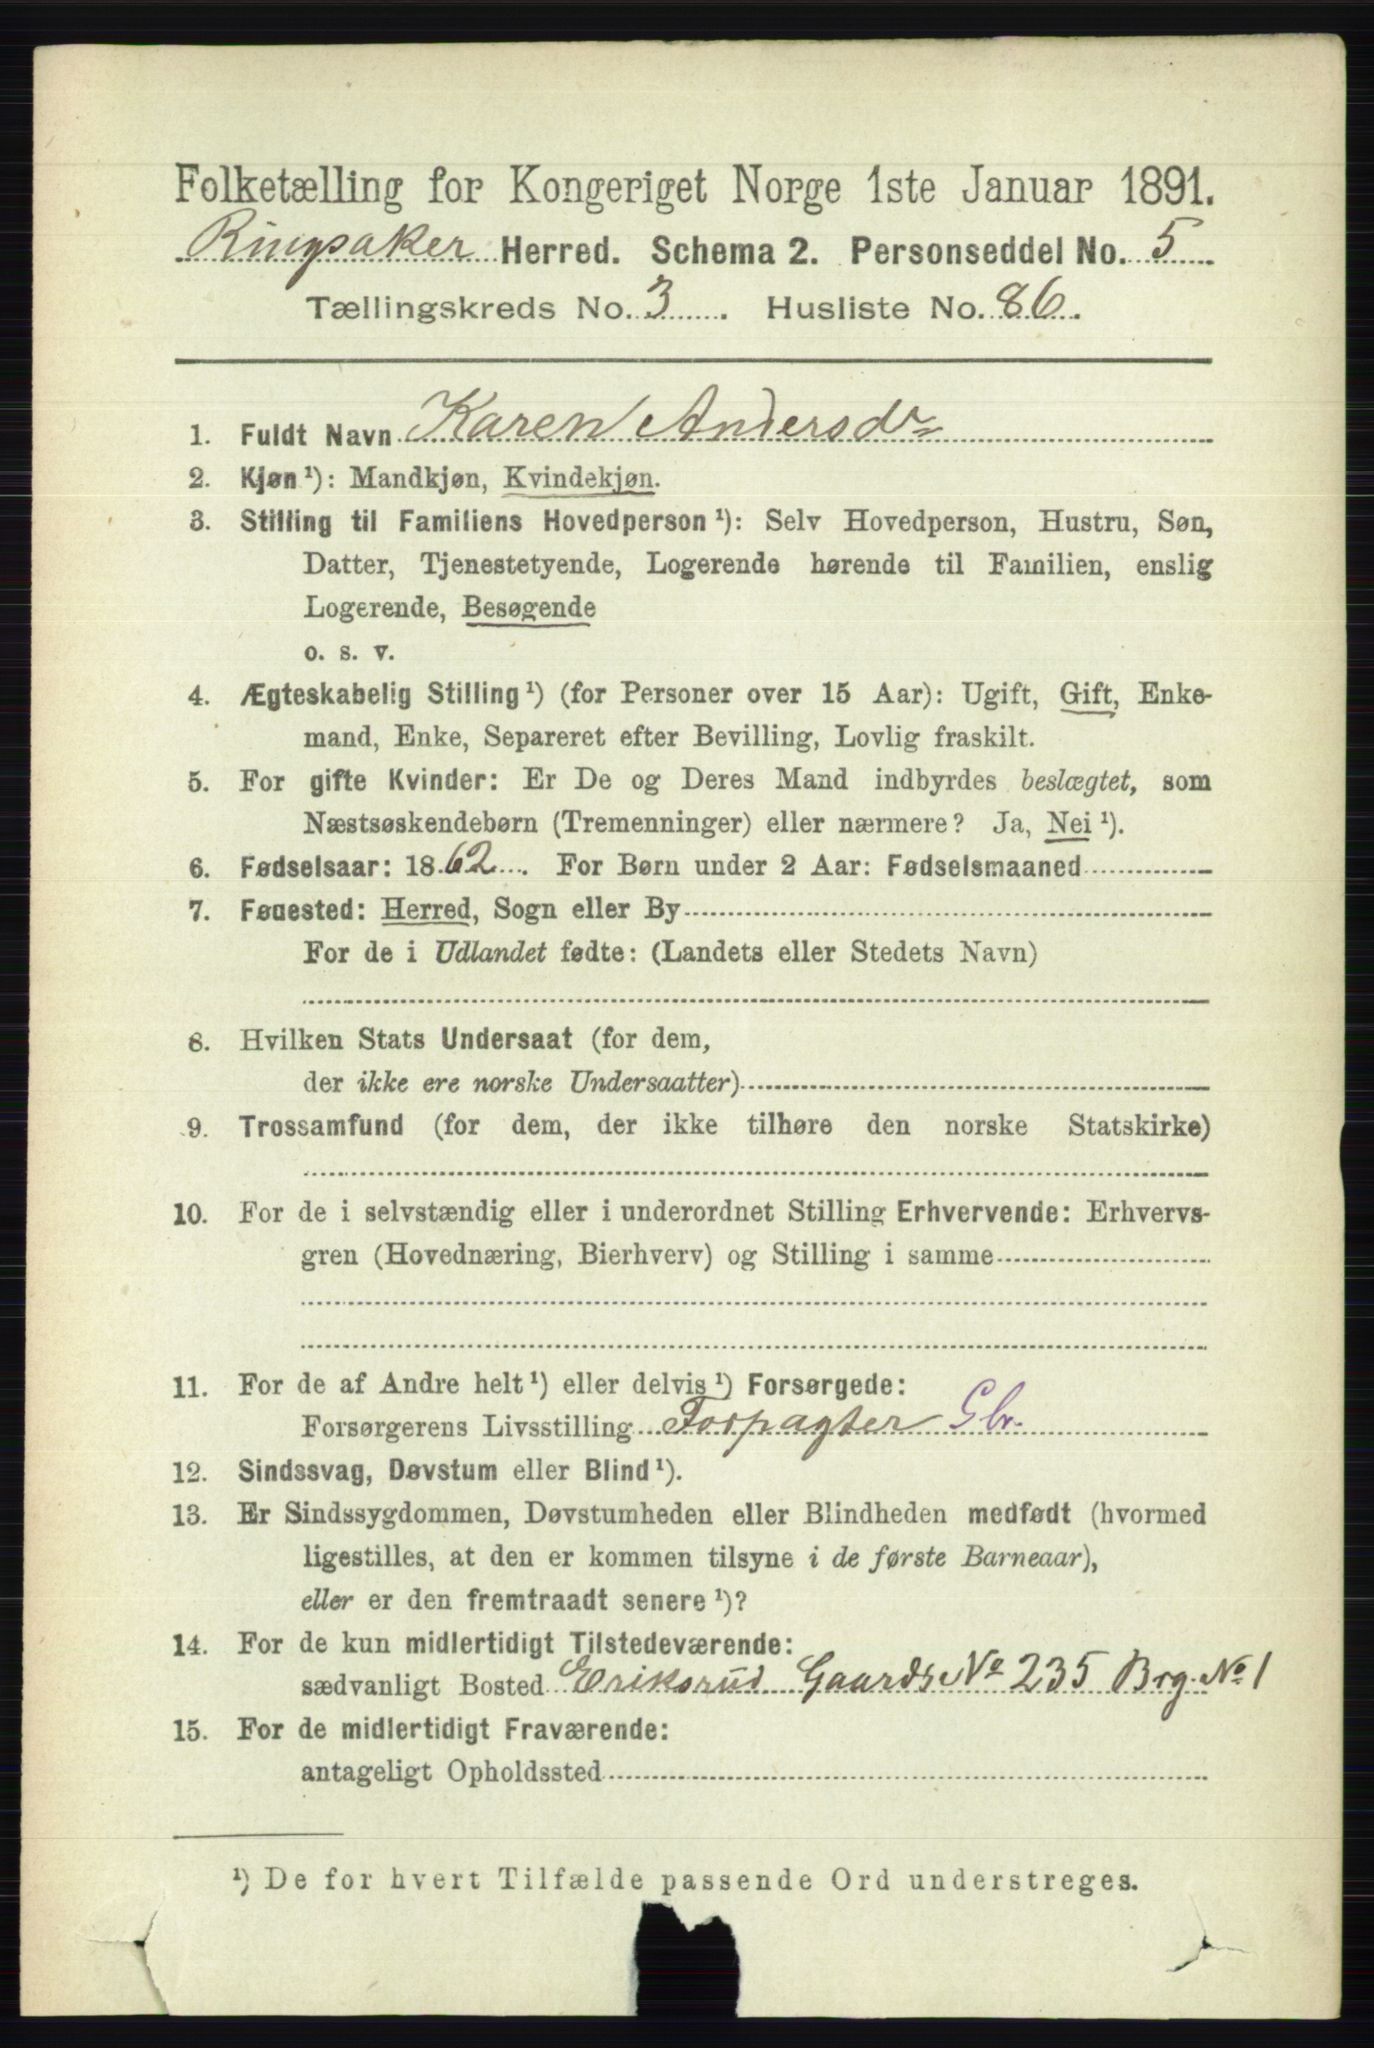 Folketælling for Kongeriget Norge 1ste Januar 1891.
Ringsaker Herred. Schema 2. Personseddel No. 5
Tællingskreds No. 3. Husliste No. 86.
1. Fuldt Navn Karen Andersdr
2. Kjøn ¹): Mandkjøn, Kvindekjøn.
3. Stilling til Familiens Hovedperson ¹): Selv Hovedperson, Hustru, Søn,
Datter, Tjenestetyende, Logerende hørende til Familien, enslig
Logerende, Besøgende
o. s. v.
4. Ægteskabelig Stilling ¹) (for Personer over 15 Aar): Ugift, Gift, Enke-
mand, Enke, Separeret efter Bevilling, Lovlig fraskilt.
5. For gifte Kvinder: Er De og Deres Mand indbyrdes beslægtet, som
Næstsøskendebørn (Tremenninger) eller nærmere? Ja, Nei ¹).
6. Fødselsaar: 1862. For Børn under 2 Aar: Fødselsmaaned
7. Føuested: Herred, Sogn eller By
For de i Udlandet fødte: (Landets eller Stedets Navn)
8. Hvilken Stats Undersaat (for dem,
der ikke ere norske Undersaatter)
9. Trossamfund (for dem, der ikke tilhøre den norske Statskirke)
10. For de i selvstændig eller i underordnet Stilling Erhvervende: Erhvervs-
gren (Hovednæring, Bierhverv) og Stilling i samme
11. For de af Andre helt ¹) eller delvis ¹) Forsørgede:
Forsørgerens Livsstilling Forpagter Gbr.
12. Sindssvag, Døvstum eller Blind ¹).
13. Er Sindssygdommen, Døvstumheden eller Blindheden medfødt (hvormed
ligestilles, at den er kommen tilsyne i de første Barneaar),
eller er den fremtraadt senere ¹)?
14. For de kun midlertidigt Tilstedeværende:
sædvanligt Bosted Eriksrud Gaards No 235 Brg. No 1
15. For de midlertidigt Fraværende:
antageligt Opholdssted
¹) De for hvert Tilfælde passende Ord understreges.